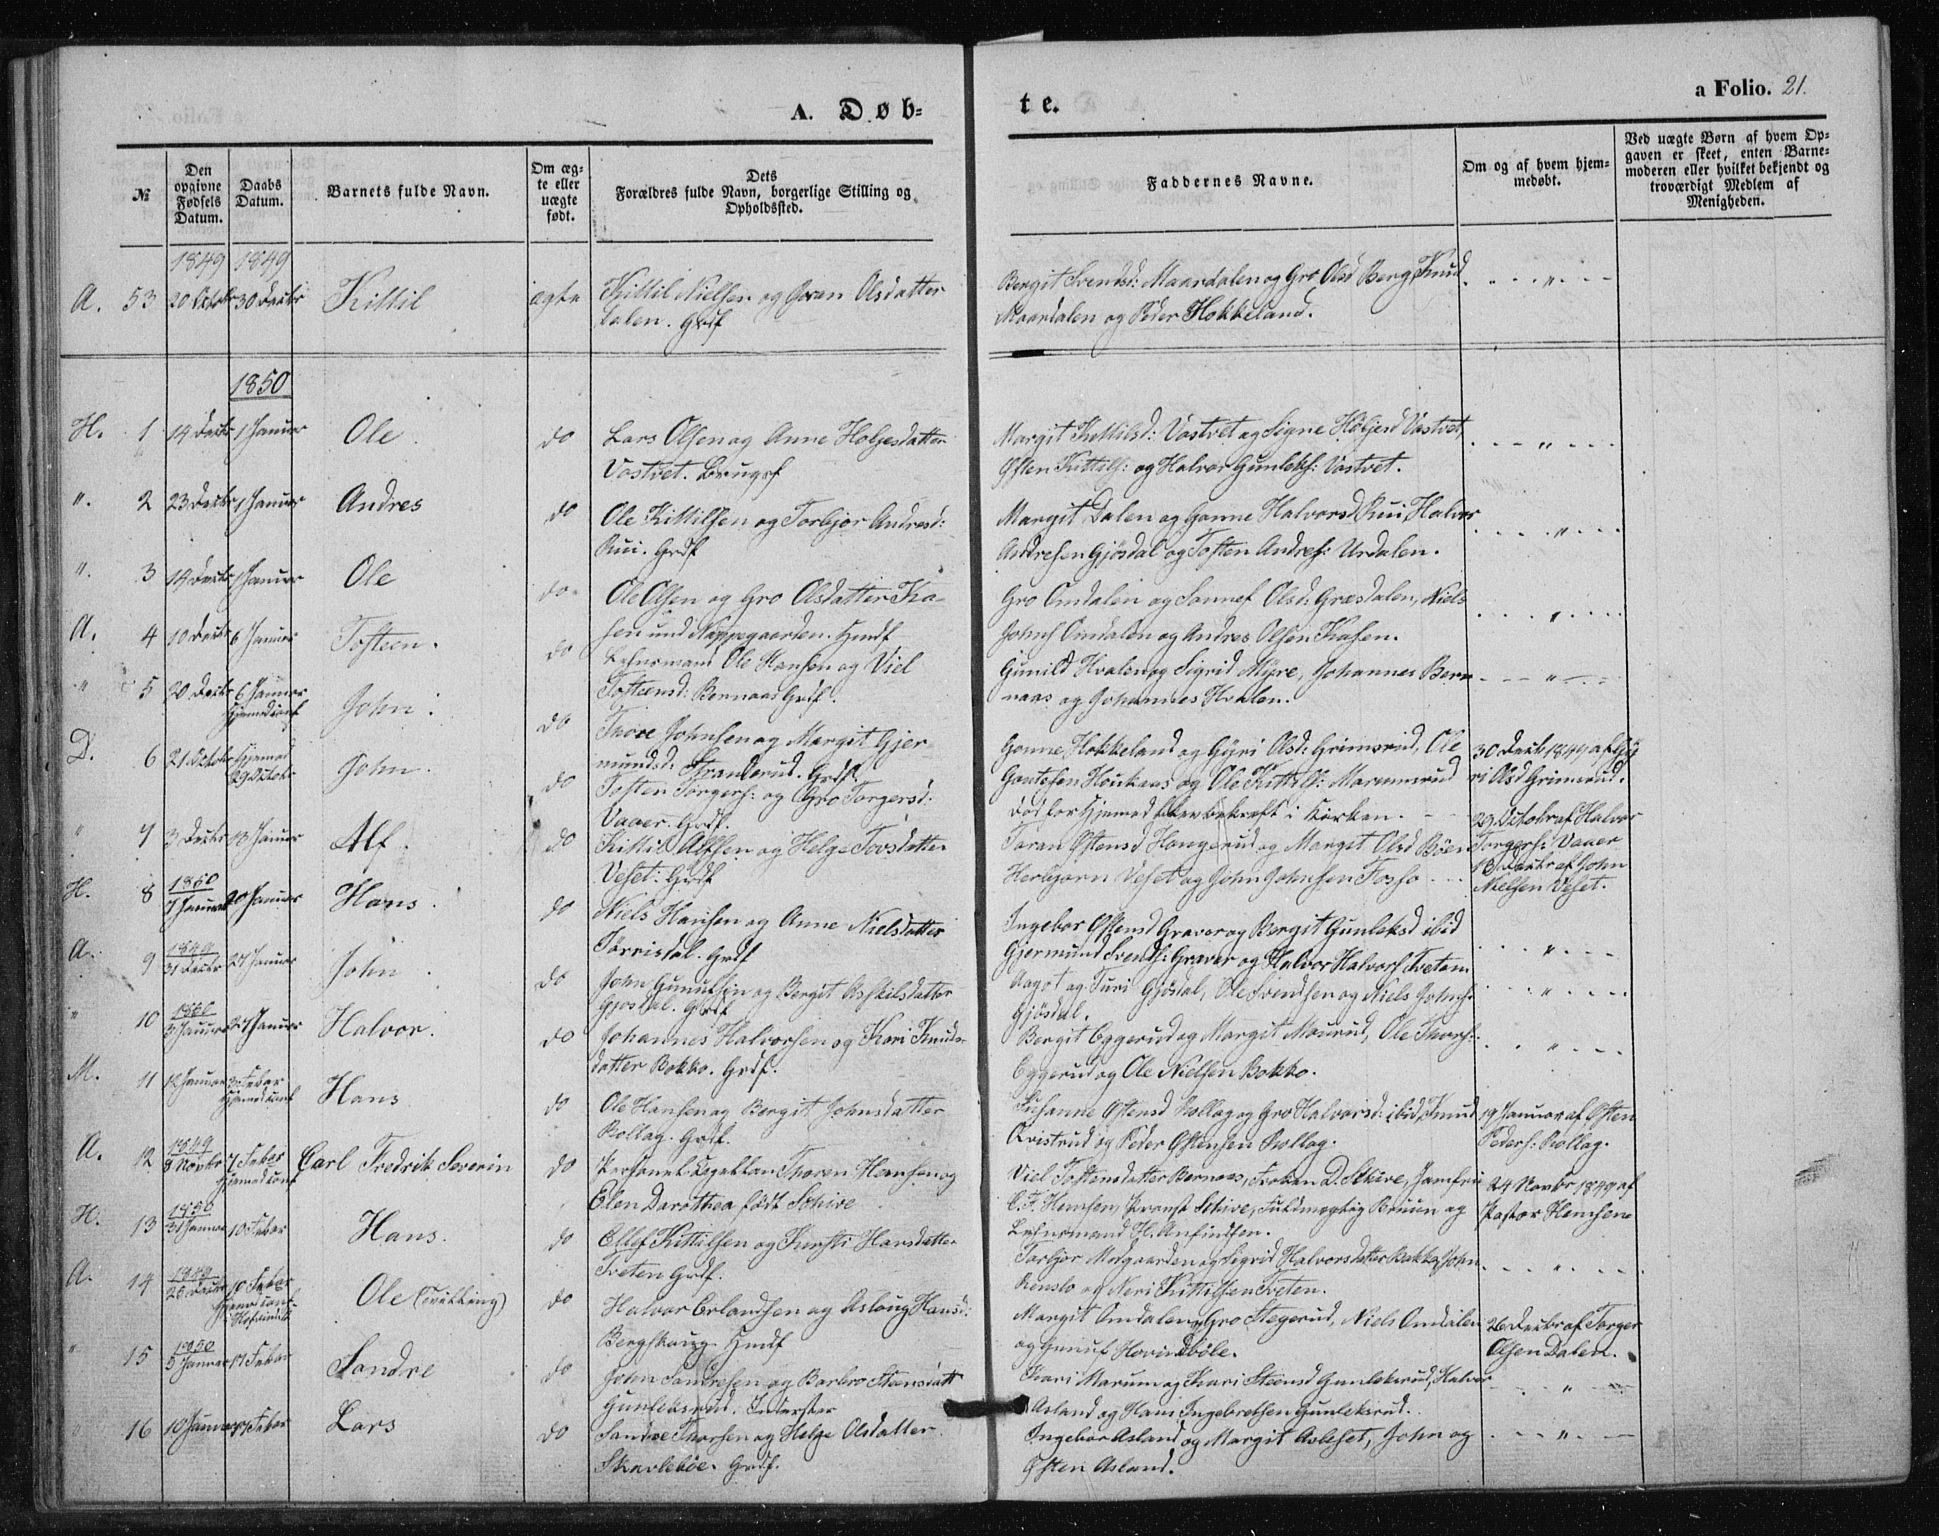 A. Døb-
te.
a Folio. 21.
№
Den opgivne Fødsels Datum.
Daabs Datum.
Barnets fulde Navn.
Om ægte eller uægte født.
Dets Forældres fulde Navn, borgerlige Stilling og Opholdssted.
Faddernes Navne.
Om og af hvem hjemmedøbt.
Ved uægte Børn af hvem Opgaven er skeet, enten Barnemoderen eller hvilket bekjendt og troværdigt Medlem af Menigheden.
1849 1849
A. 53 20 Octobr 30 Decbr Kittil ægte Kittil Nielsen og Goran Olsdatter
Dalen. Grdf
Bergit Svendsd: Maardalen og Gro Olsd Berg, Knud
Maardalen og Peder Hokkeland.
1850
H. 1 14 Decbr 1 Januar Ole do Lars Olsen og Anne Holjesdatter
Vastvet. Brugsf
Margit Kittilsd: Vastvet og Signe Holjesd Vastvet,
Østen Kittils: og Halvor Gunleks: Vastvet.
". 2 23 Decbr 1 Januar Andres do Ole Kittilsen og Torbjor Andresd:
Rui. Grdf
Margit Dalen og Gonne Halvorsd Rui, Halvor
Andresen Gjösdal og Tosten Andres: Urdalen.
". 3 14 Decbr 1 Januar Ole do. Ole Olsen og Gro Olsdatter Kaa-
sen und Nappegaarden. Hmdf
Gro Omdalen og Sonnef Olsd: Græsdalen, Niels
Johns Omdalen og Andres Olsen Kasen.
A. 4 10 Decbr 6 Januar Tosteen. do Lehnsmand Ole Hansen og Viel
Tosteensd: Bernaas Grdf.
Gunild Hvalen og Sigrid Myre, Johannes Bern-
naas og Johannes Hvalen.
" 5 20 Decbr 6 Januar
Hjemed conf
John. do Thore Johnsen og Margit Gjer-
mundsd: Stranderud. Grdf.
Gonne Hokkeland og Gyri Olsd: Grimsrud, Ole
30 Decbr 1849 af Gy
ri Olsd Grimsrud.
D. 6 21 Octobr Hjemed
29 Octobr
John. do Tosten Torgers: og Gro Torgersd:
Vaaer. Grdf.
Død før Hjemed blev bekræft i Kirken.
29 Octobr af Halvor
Torgers: Vaaer
" 7 3 Decbr 13 Januar Alf. do Kittil Alfsen og Helge Tovsdatter
Veset. Grdf
Taran Østensd Haugerud og Margit Olsd Böen
Herbjorn Veset og John Johnsen Fosso
13 Decbr af John
Nielsen Veset.
H. 8 1850
7 Januar 20 Januar Hans. do Niels Hansen og Anne Nielsdatter
Torrisdal. Grdf
Ingebor Østensd Graver og Bergit Gunleksd ibid
Gjermund Svends: Graver og Halvor Halvors Tveten.
A. 9 1849
31 Decbr 27 Januar John. do John Gunulfsen og Bergit Asskilsdatter
Gjosdal. Grdf
Aagot og Turi Gjösdal, Ole Svendsen og Niels Johns:
Gjösdal.
" 10 1850
3 Januar 27 Januar Halvor. do Johannes Halvorsen og Kari Knuds-
datter Bakko. Grdf.
Bergit Eggerud og Margit Maurud, Ole Thors:
Eggerud og Ole Nielsen Bakko.
M. 11 12 Januar 3 Febar
Hjemed conf
Hans do Ole Hansen og Bergit Johnsdatter
Rollag. Grdf.
Susanne Østensd Rollag og Gro Halvorsd: ibid, Knud
Qvistrud og Peder Østensen Rollag.
19 Januar af Østen
Peders: Rollag.
A. 12 1849
8 Novbr 7 Febar
Hjemed conf
Carl Fredrik Severin do Personel Capellan Thoren Hansen og
Elen Dorothea født Schive
Viel Tostensdatter Bernaas, Frøken D. Schive, Jomfru
C. F. Hemsen, Provst Schive, Fuldmægtig Bruun og
Lehnsmand H. Anfindsen.
24 Novbr 1849 af
Pastor Hemsen
H. 13 1850
31 Januar 10 Febar Hans. do Ellef Kittilsen og Kirsti Hansdatter
Tveten Grdf.
Torbjor Midgaarden og Sigrid Halvorsdatter Bakko, John
Renslo og Neri Kittilsen Tveten.
A. 14 1849
26 Decbr 10 Febar
Hjemed conf
i Hovindsb
Ole (Trilling) do Halvor Erlandsen og Aslaug Hansd:
Bergskaug. Hmdf
Margit Omdalen, Gro Stegerud, Niels Omdalen
og Gunuf Hovindböle.
26 Decbr af Torger
Olsen Dalen.
" 15 1850
5 Januar 17 Febar Sondre do John Sondresen og Barbro Steensdatt
Gunleksrud. Inderster
Kari Marum og Kari Steensd Gunleksrud, Halvor
Asland og Hans Ingebretsen Gunleksrud.
" 16 10 Januar 17 Febar Lars do Sondre Thorsen og Helge Olsdatter
Skavlebøe. Grdf.
Ingebor Asland og Margit Asleset, John og
Østen Asland.